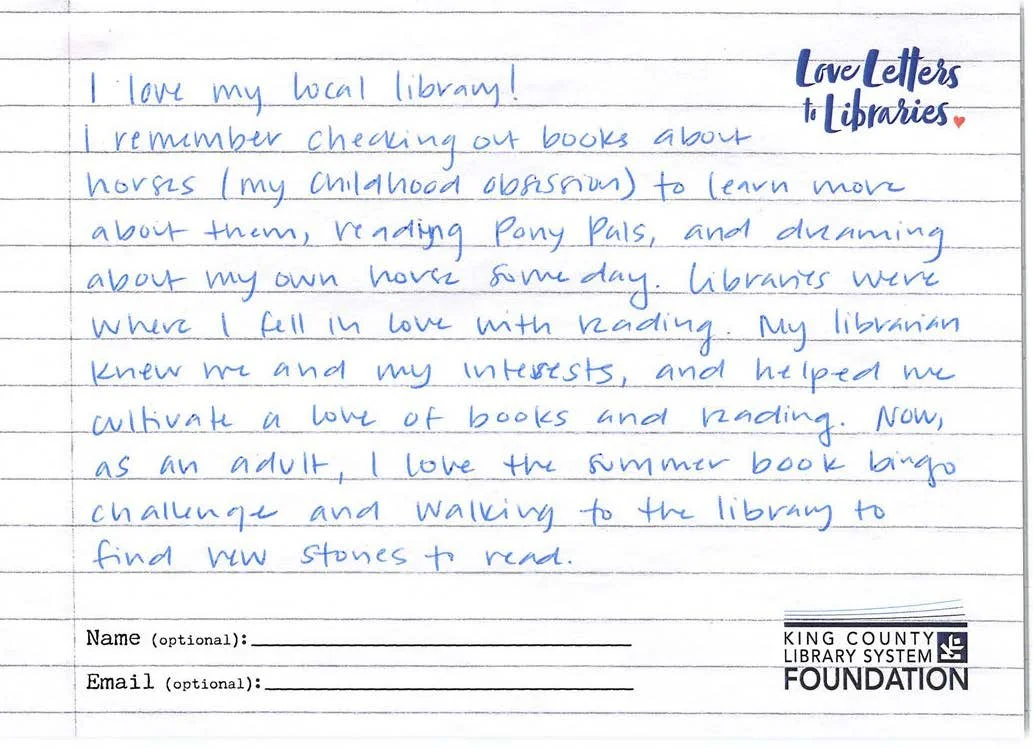 Love Letters
to Libraries
I love my local library!
I remember checking out books about
horses (my childhood obsession) to learn more
about them, reading Pony Pals, and dreaming
about my own horse some day. Libraries were
where I fell in love with reading. My librarian
knew me and my interests, and helped me
cultivate a love of books and reading. Now,
as an adult, I love the summer book bingo
challenge and walking to the library to
find new stories to read.
Name (optional):
Email (optional):
KING COUNTY
LIBRARY SYSTEM
FOUNDATION